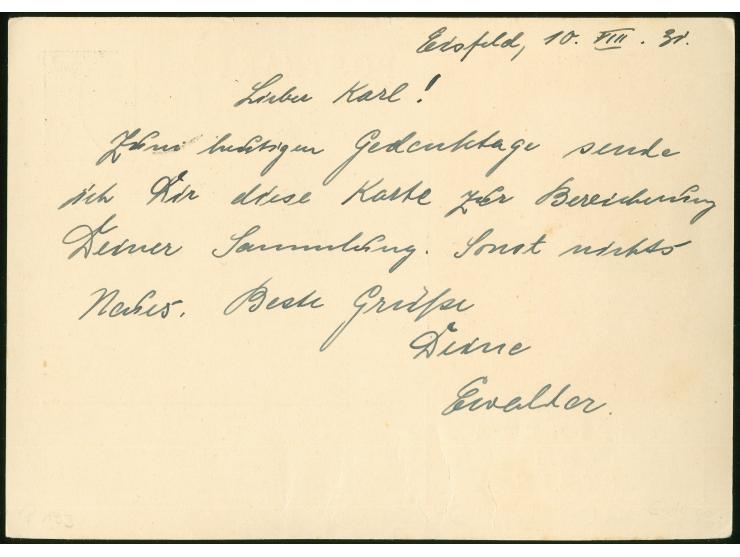 Eisfeld, 10. VIII. 31.
Lieber Karl!
Zum heutigen Gedenktage sende
ich Dir diese Karte zur Bereicherung
Deiner Sammlung. Sonst nichts
Neues. Beste Grüße
Deine